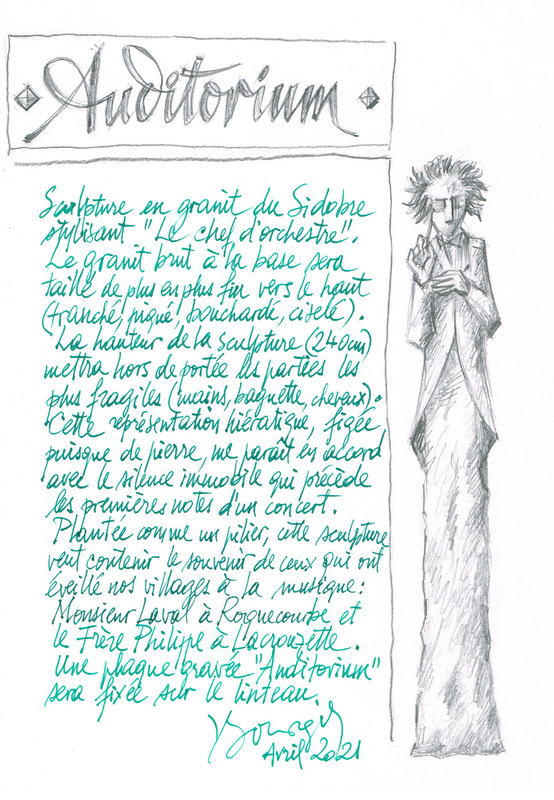 Auditorium
Sculpture en granit du Sidobre
stylisant "Le chef d'orchestre".
Le granit brut à la base sera
taillé de plus en plus fin vers le haut
(tranché, piqué, bouchardé, ciselé).
La hauteur de la sculpture (240cm)
mettra hors de portée les parties les
plus fragiles (mains, baguette, cheveux).
Cette représentation hiératique, figée
puisque de pierre, me paraît en accord
avec le silence immobile qui précède
les premières notes d'un concert.
Plantée comme un pilier, cette sculpture
veut contenir le souvenir de ceux qui ont
éveillé nos villages à la musique:
Monsieur Laval à Roquecourbe et
le Frère Philippe à Lacrouzette.
Une plaque gravée "Auditorium"
sera fixée sur le linteau.
Avril 2021